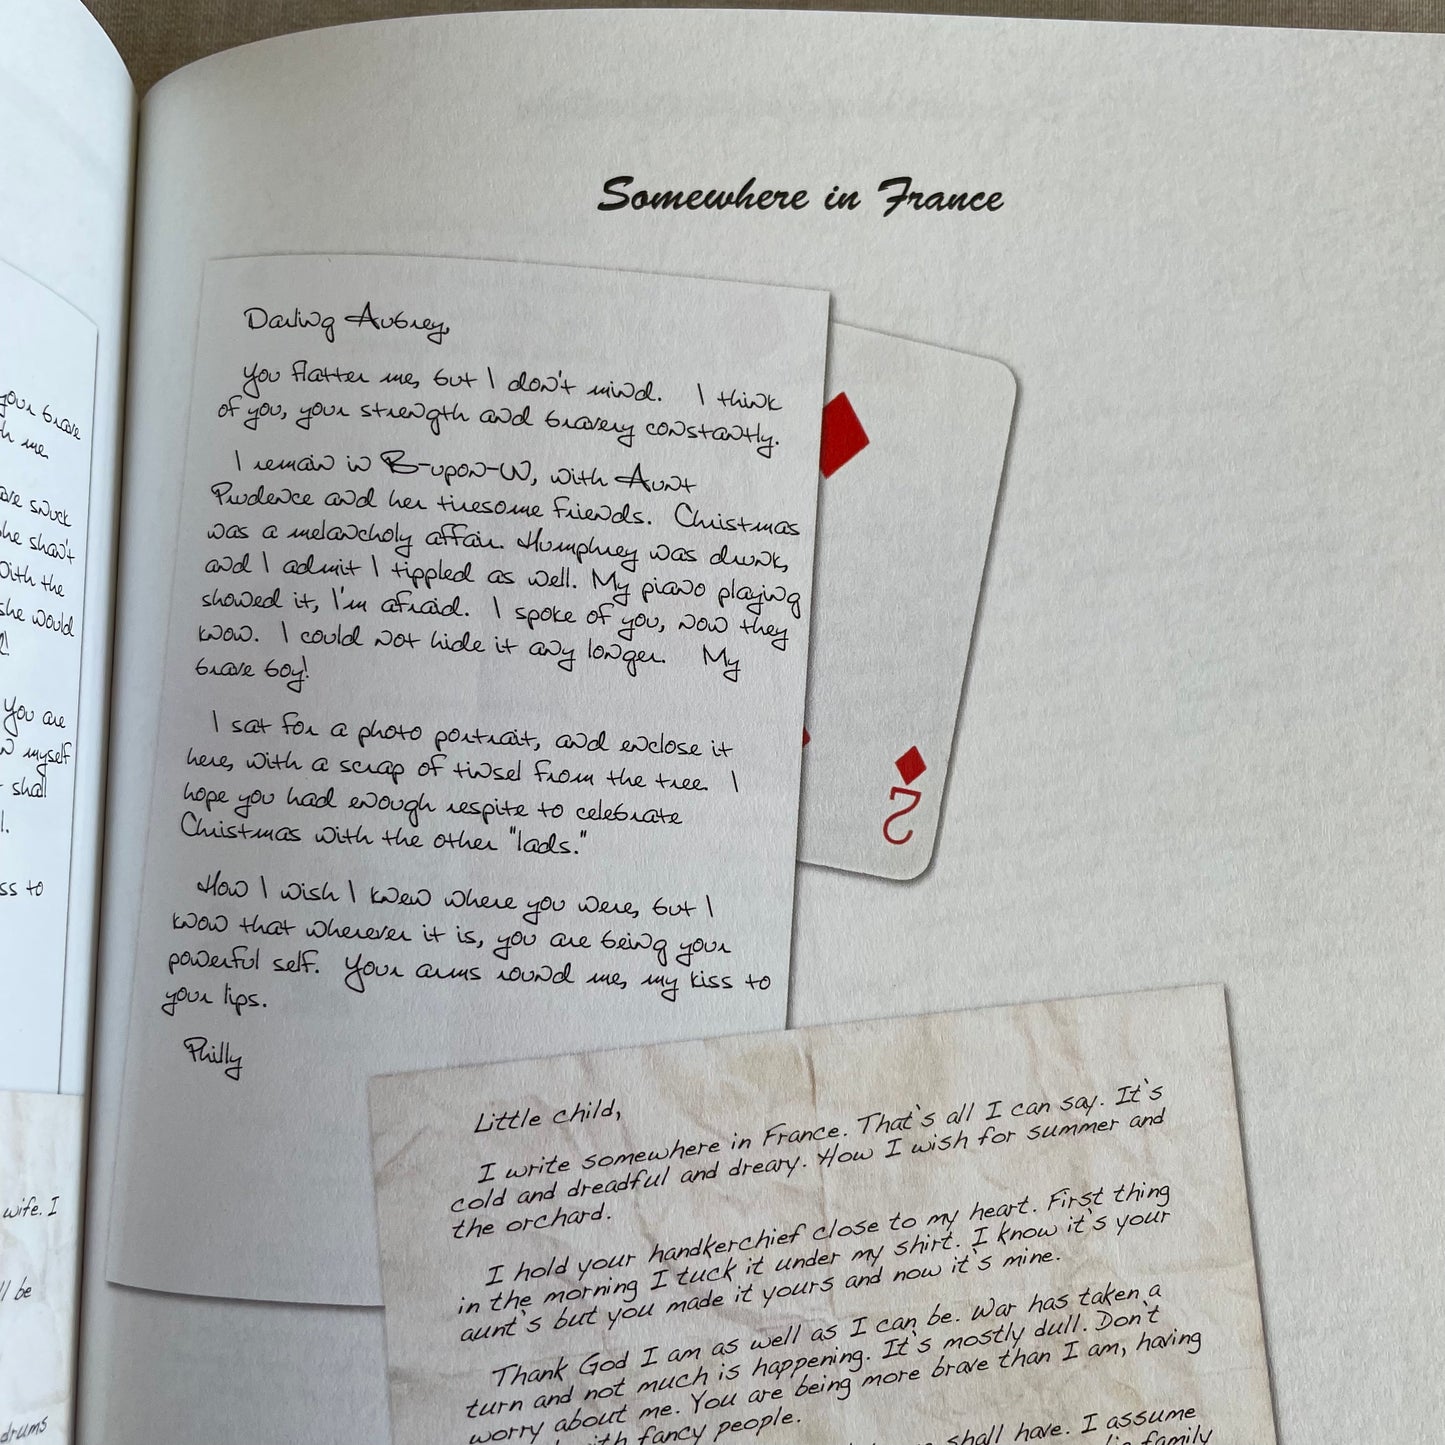 your brave
me.
snuck
she shan't
With the
she would
You are
myself
shall
to
wife. I
be
drums
Somewhere in France
Darling Aubrey,
You flatter me, but I don't mind. I think
of you, your strength and bravery constantly.
I remain in B-upon-W, with Aunt
Prudence and her tiresome friends. Christmas
was a melancholy affair. Humphrey was drunk,
and I admit I tippled as well. My piano playing
showed it, I'm afraid. I spoke of you, now they
know. I could not hide it any longer. My
brave boy!
I sat for a photo portrait, and enclose it
here, with a scrap of tinsel from the tree. I
hope you had enough respite to celebrate
Christmas with the other "lads."
How I wish I knew where you were, but I
know that wherever it is, you are being your
powerful self. Your arms round me, my kiss to
your lips.
Philly
2
Little child,
I write somewhere in France. That's all I can say. It's
cold and dreadful and dreary. How I wish for summer and
the orchard.
I hold your handkerchief close to my heart. First thing
in the morning I tuck it under my shirt. I know it's your
aunt's but you made it yours and now it's mine.
Thank God I am as well as I can be. War has taken a
turn and not much is happening. It's mostly dull. Don't
worry about me. You are being more brave than I am, having
with fancy people.
shall have. I assume
family